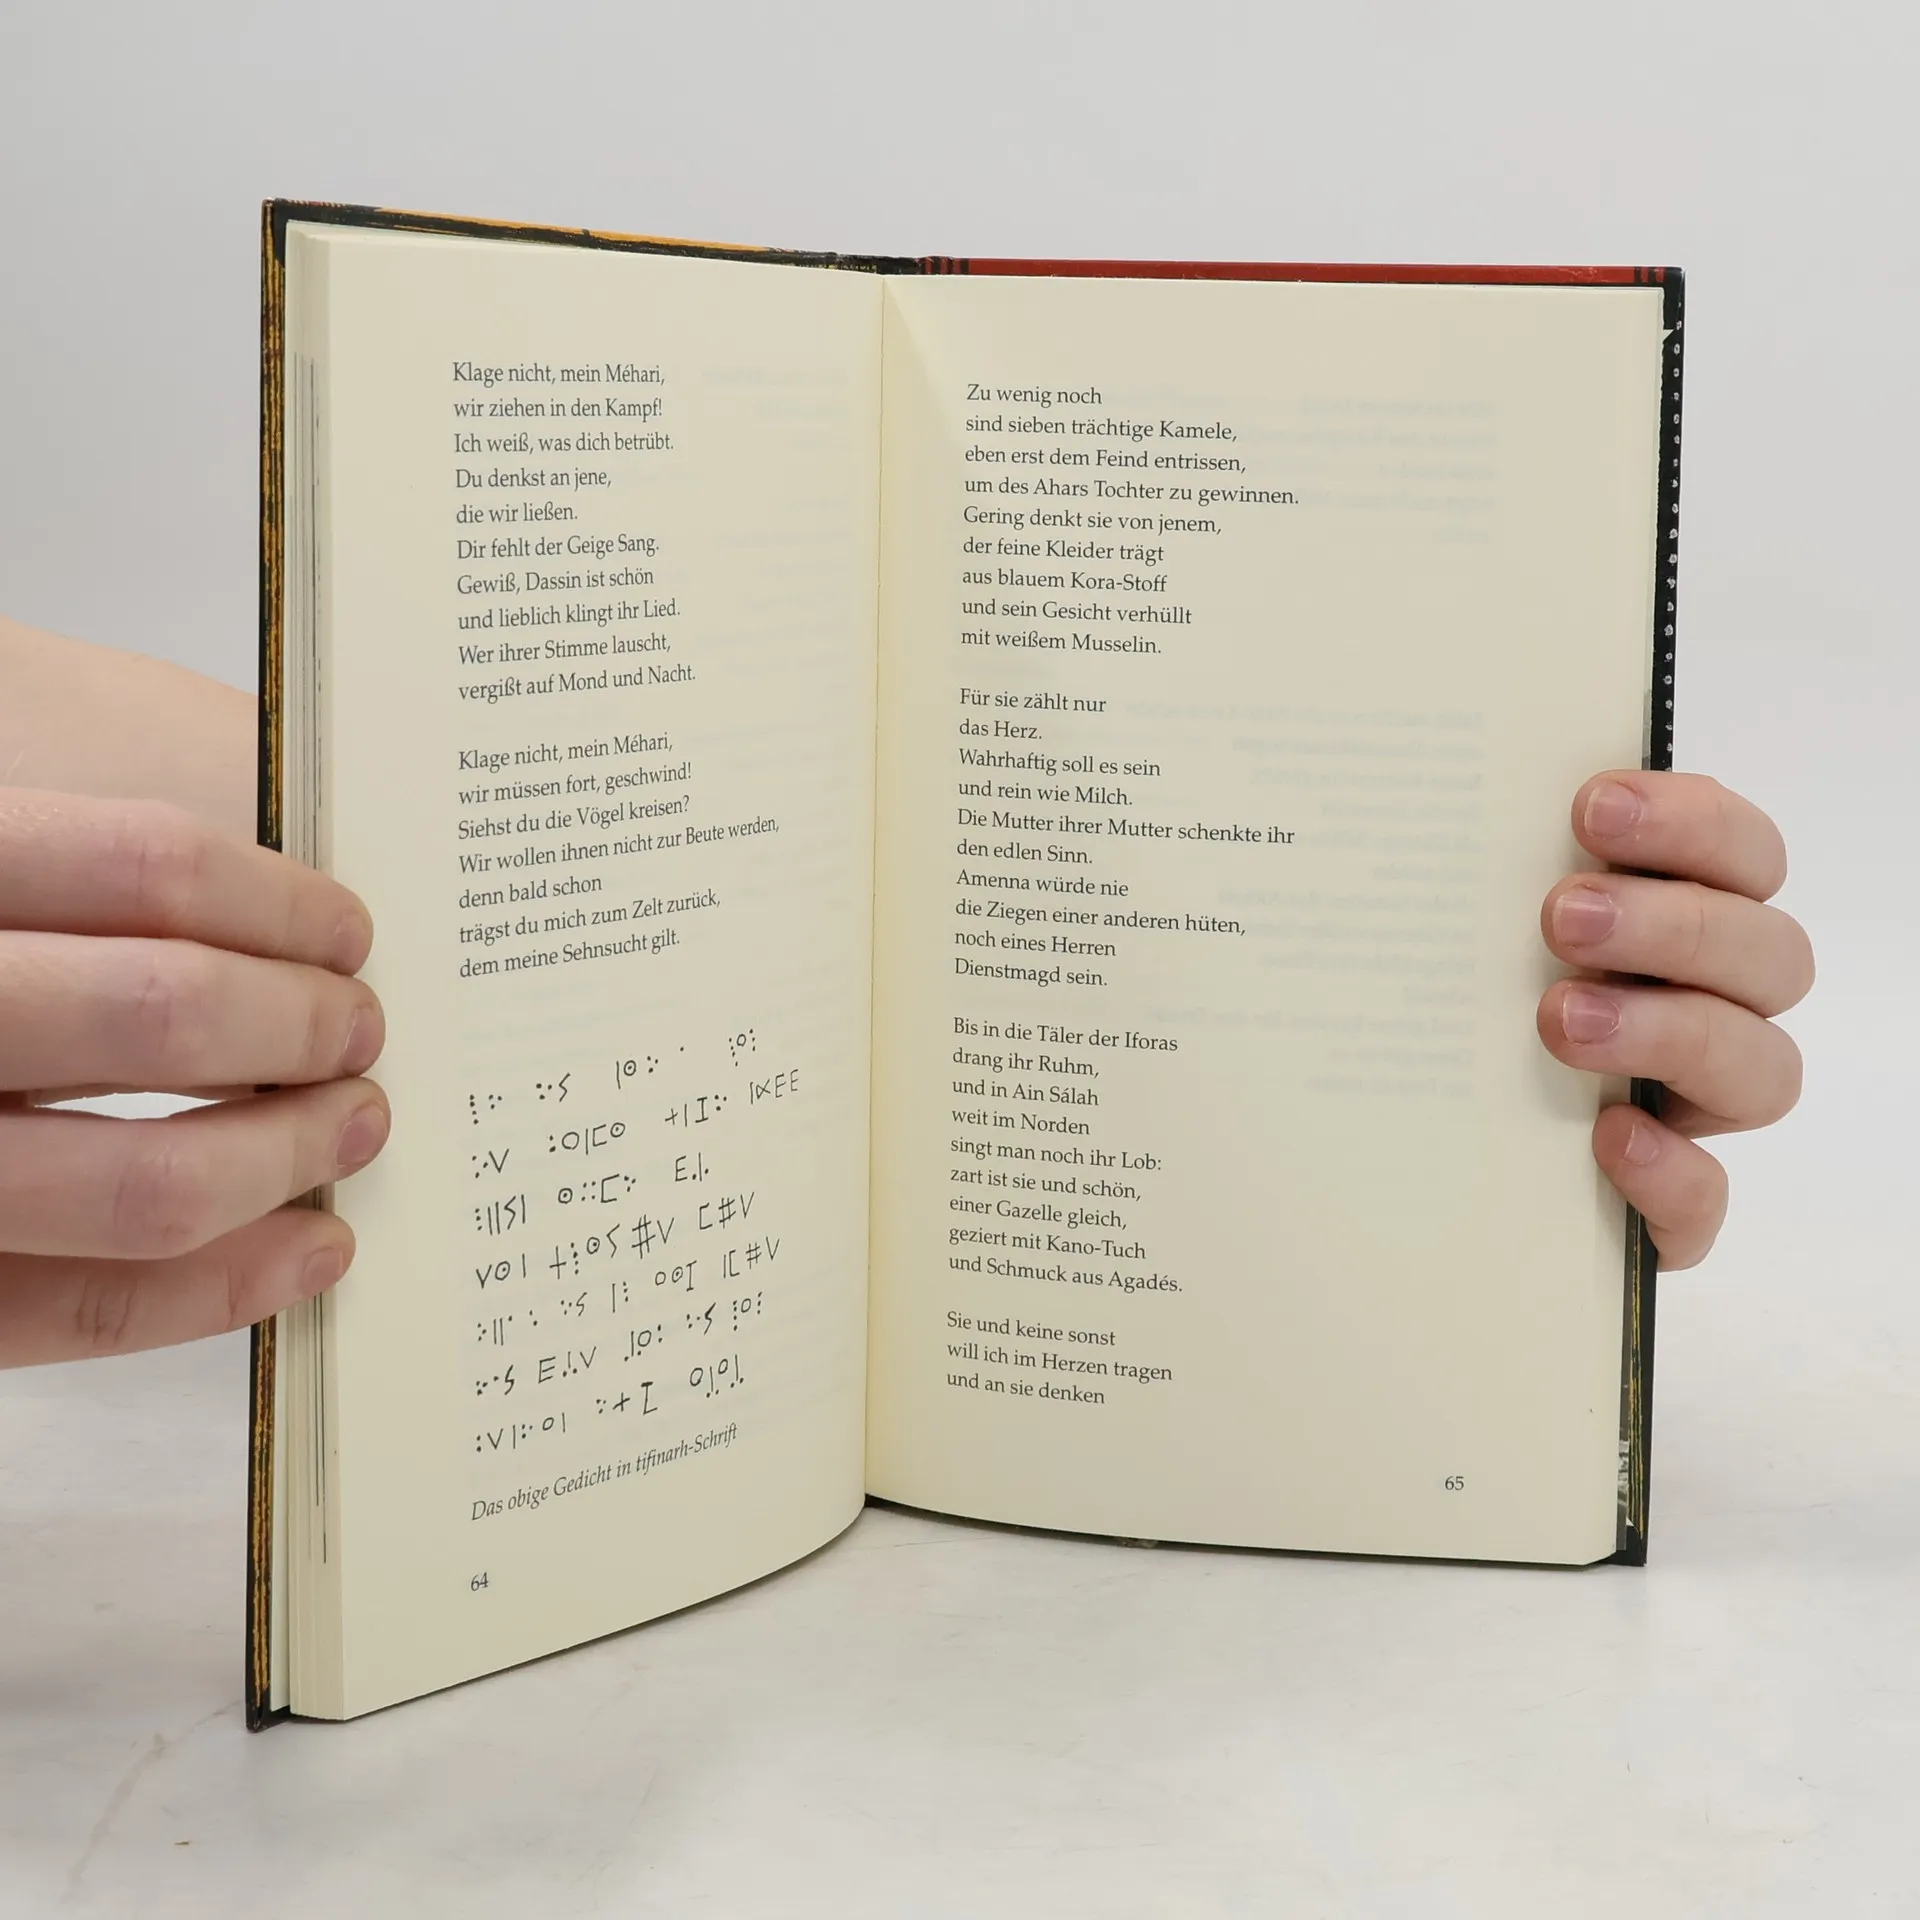 Klage nicht, mein Méhari,
wir ziehen in den Kampf!
Ich weiß, was dich betrübt.
Du denkst an jene,
die wir ließen.
Dir fehlt der Geige Sang.
Gewiß, Dassin ist schön
und lieblich klingt ihr Lied.
Wer ihrer Stimme lauscht,
vergißt auf Mond und Nacht.
Klage nicht, mein Méhari,
wir müssen fort, geschwind!
Siehst du die Vögel kreisen?
Wir wollen ihnen nicht zur Beute werden,
denn bald schon
trägst du mich zum Zelt zurück,
dem meine Sehnsucht gilt.
Das obige Gedicht in tifinarh-Schrift
64
Zu wenig noch
sind sieben trächtige Kamele,
eben erst dem Feind entrissen,
um des Ahars Tochter zu gewinnen.
Gering denkt sie von jenem,
der feine Kleider trägt
aus blauem Kora-Stoff
und sein Gesicht verhüllt
mit weißem Musselin.
Für sie zählt nur
das Herz.
Wahrhaftig soll es sein
und rein wie Milch.
Die Mutter ihrer Mutter schenkte ihr
den edlen Sinn.
Amenna würde nie
die Ziegen einer anderen hüten,
noch eines Herren
Dienstmagd sein.
Bis in die Täler der Iforas
drang ihr Ruhm,
und in Ain Sálah
weit im Norden
singt man noch ihr Lob:
zart ist sie und schön,
einer Gazelle gleich,
geziert mit Kano-Tuch
und Schmuck aus Agadés.
Sie und keine sonst
will ich im Herzen tragen
und an sie denken
65